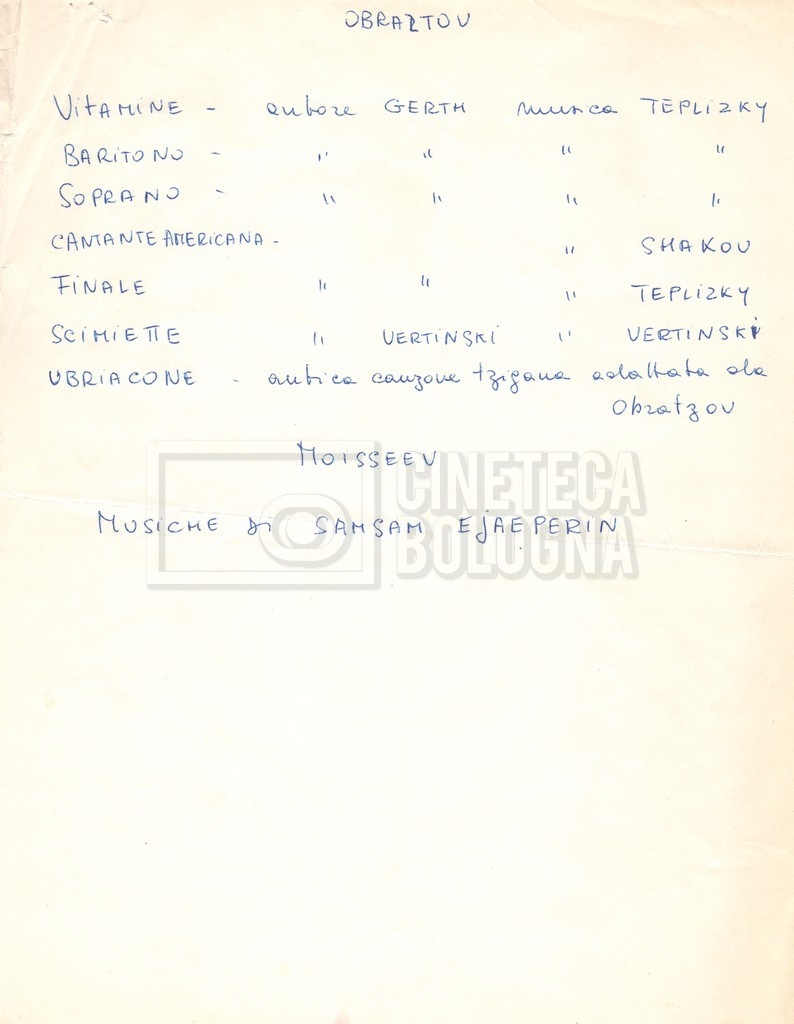 OBRAZTOV
VITAMINE - autore GERTH musica TEPLIZKY
BARITONO - " " " "
SOPRANO - " " " "
CANTANTE AMERICANA - " SHAKOV
FINALE " " " TEPLIZKY
SCIMIETTE " VERTINSKI " VERTINSKI
UBRIACONE - antica canzone tzigana adattata da
Obratzov
MOISSEEV
MUSICHE DI SAMSAM EJAEPERIN
CINETECA
BOLOGNA